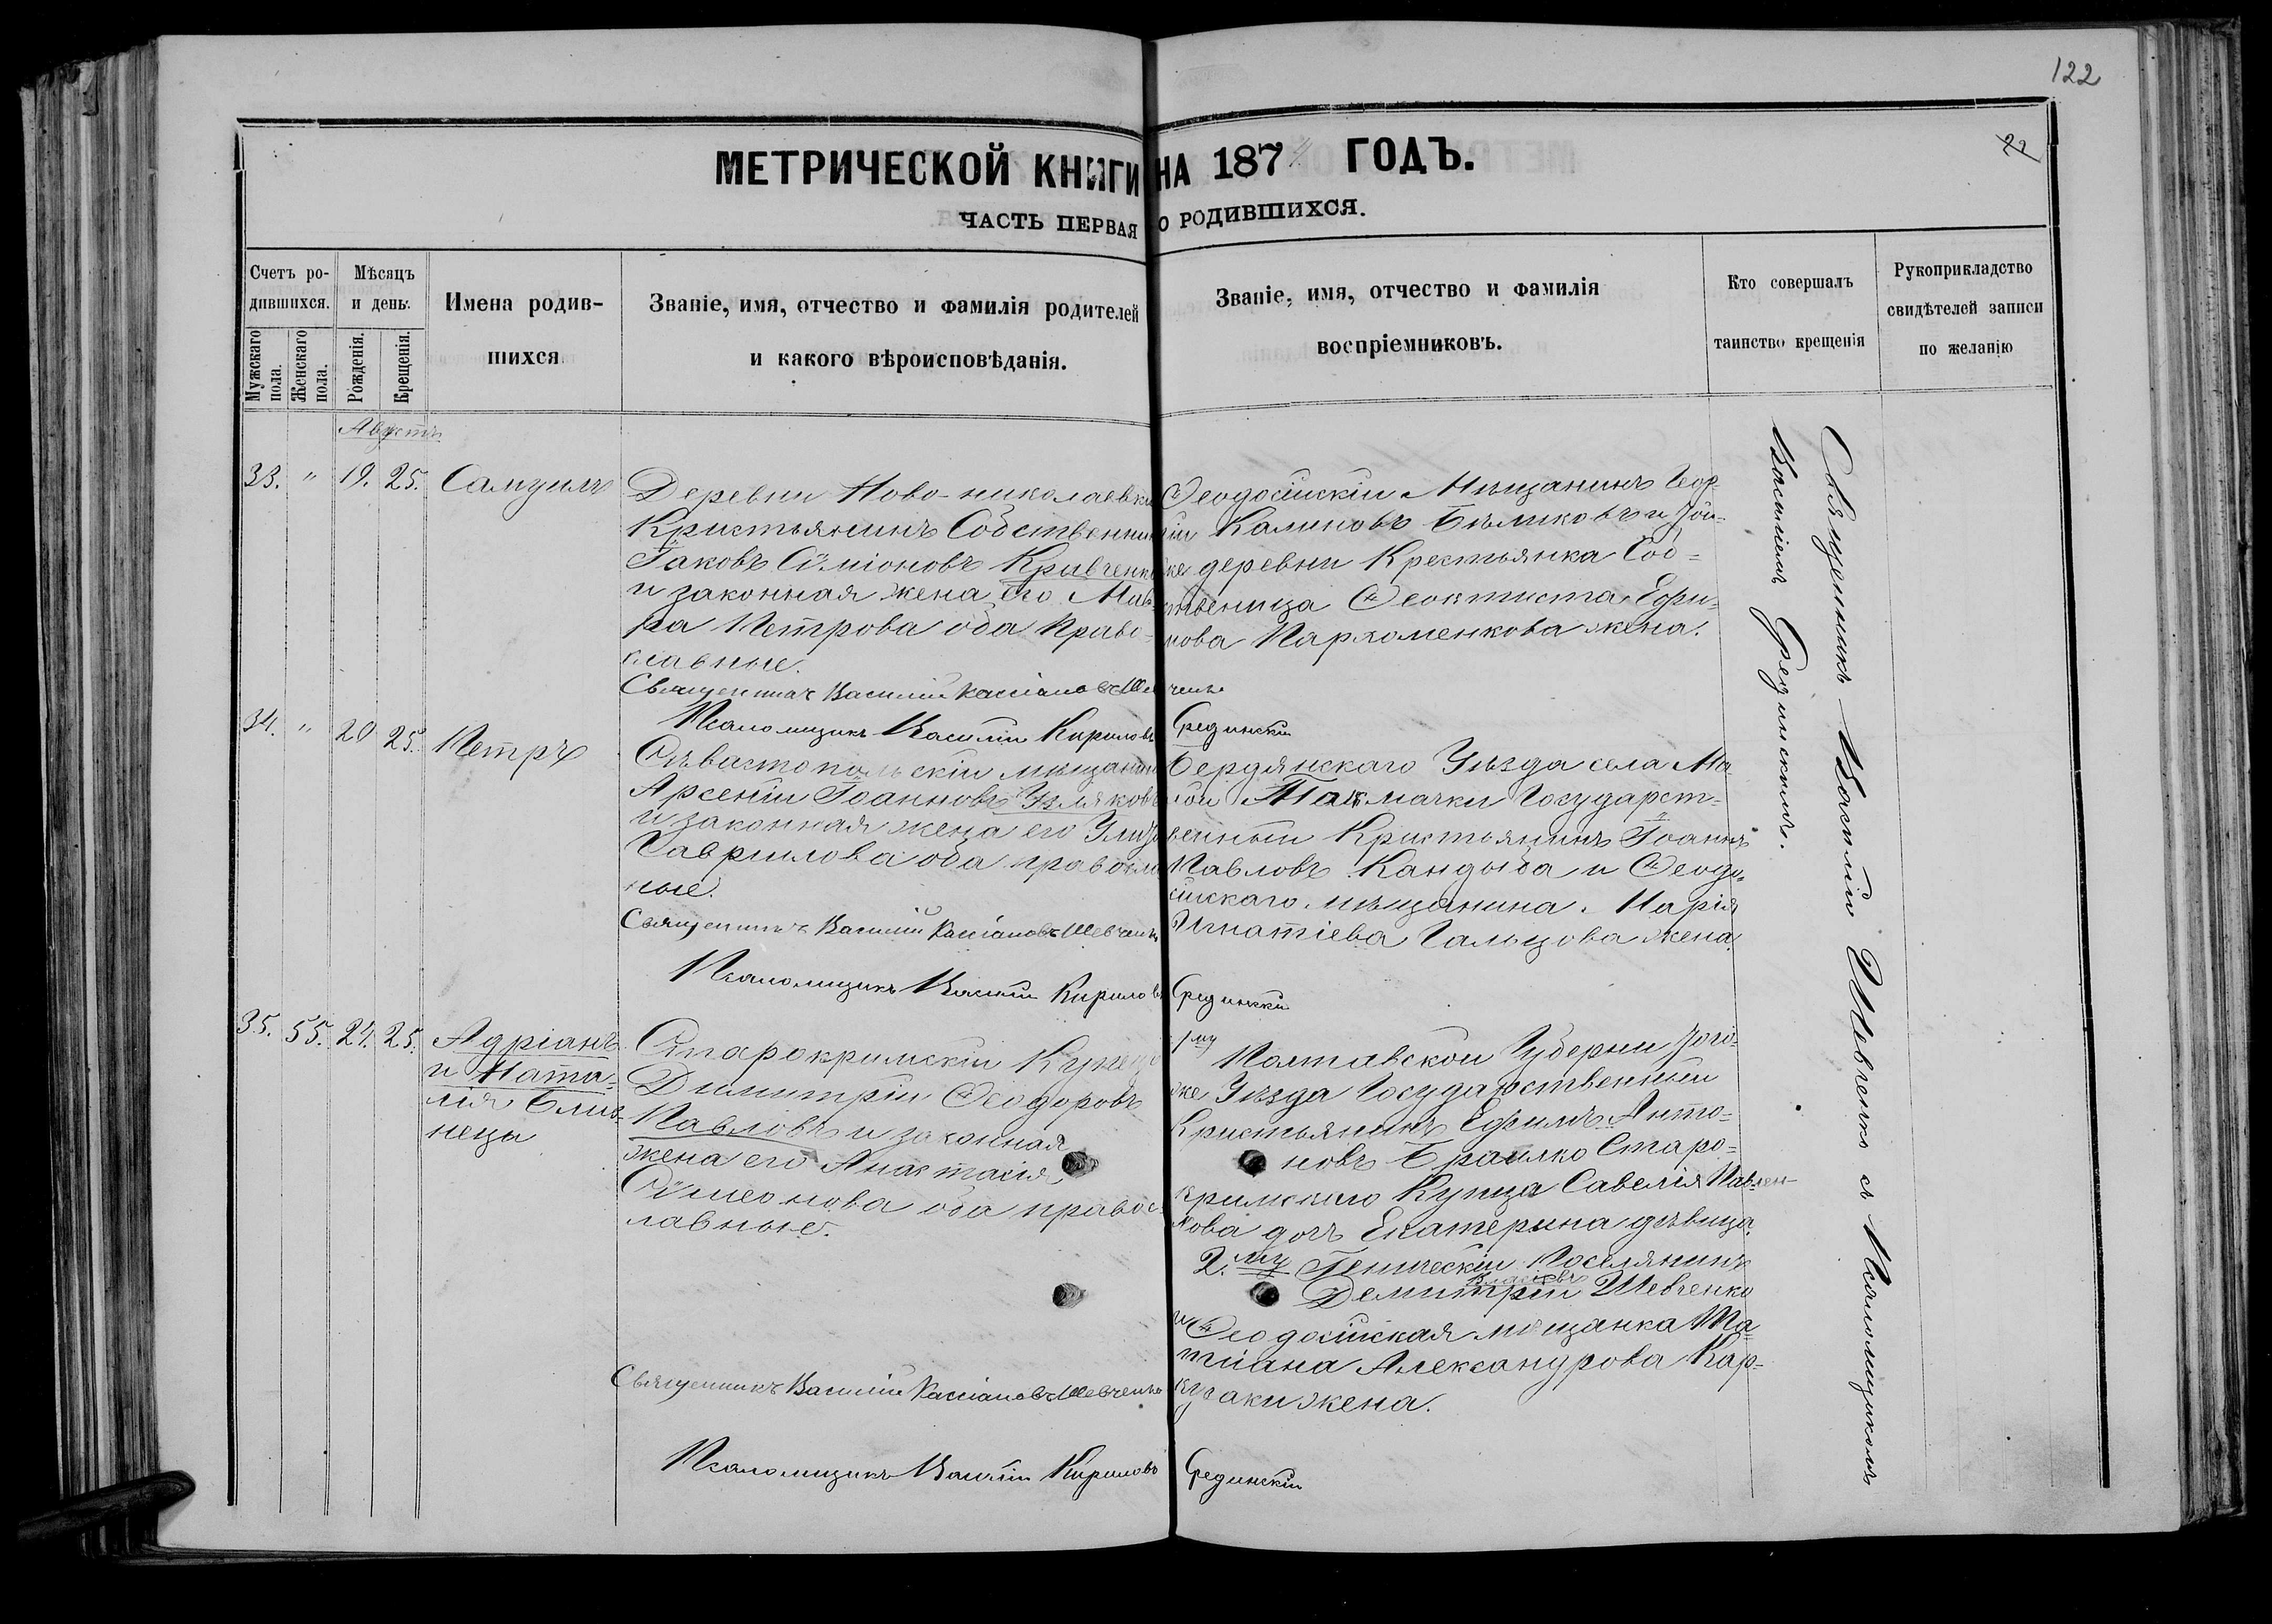 122
22
МЕТРИЧЕСКОЙ КНИГИ НА 187 ГОДЪ.
ЧАСТЬ ПЕРВАЯ О РОДИВШИХСЯ.
Счетъ ро-
дившихся.
Мужскаго пола.
Женскаго пола.
Мѣсяцъ
и день.
Рожденія.
Крещенія.
Имена родив-
шихся
Званіе, имя, отчество и фамилія родителей
и какого вѣроисповѣданія.
Званіе, имя, отчество и фамилія
воспріемниковъ.
Кто совершалъ
таинство крещенія
Рукоприкладство
свидѣтелей записи
по желанію
Августъ
33. " 19. 25. Самуилъ
Деревни Ново-николаевки
Кристьянинъ Собственник
Іаковъ Сѵміоновъ Кривченко
и законная жена его Мав-
ра Петрова оба Право-
славные.
Священникъ Василій Кассіановъ Шевченко
Псаломщикъ Василій Кириловъ Срединскій
Ѳеодосійскій Мѣщанинъ Геор-
гій Калиновъ Бѣликовъ и той-
же деревни Крестьянка Соб=
ственица Ѳеоктиста Ефи-
мова Пархоменкова жена.
34. " 20 25. Петръ
Сѣвастопольскій мѣщанинъ
Арсеній Іоанновъ
и законная жена его
Гаврилова оба правосла
ные.
Священникъ Василій Кассіановъ Шевченко
Псаломщикъ Василій Кириловъ Срединскій
Бердянскаго Уѣзда села Ма
лой Такмачки Государст=
венный Кристьянинъ Іоаннъ
Павловъ Кандыба и Ѳеодо-
сійскаго мѣщанина Марія
Игнатіева Гальцова жена.
35. 55. 24. 25. Адріанъ
и Ната=
лія Близ-
нецы
Старокримскій Купецъ
Димитрій Ѳеодоровъ
Павловъ и законная
жена его Анастасія
Сѵмеонова оба правос
лавные.
Священникъ Василій Кассіановъ Шевченко
Псаломщикъ Василій Кириловъ Срединскій
1му Полтавской Губерни того
же Уѣзда Государственный
Кристьянинъ Ефимъ Анто=
новъ Браилко Старо=
кримскаго Купца Савелія Павлен-
кова дочь Екатерина дѣвица.
2.му Геническій Поселянинъ
Власовъ
Демитрій Шевченко
и Ѳеодосійская мѣщанка Та=
тиана Александрова Кар=
жена.
Священникъ Василій Шевченко съ Псаломщикомъ
Василіемъ Срединскимъ.